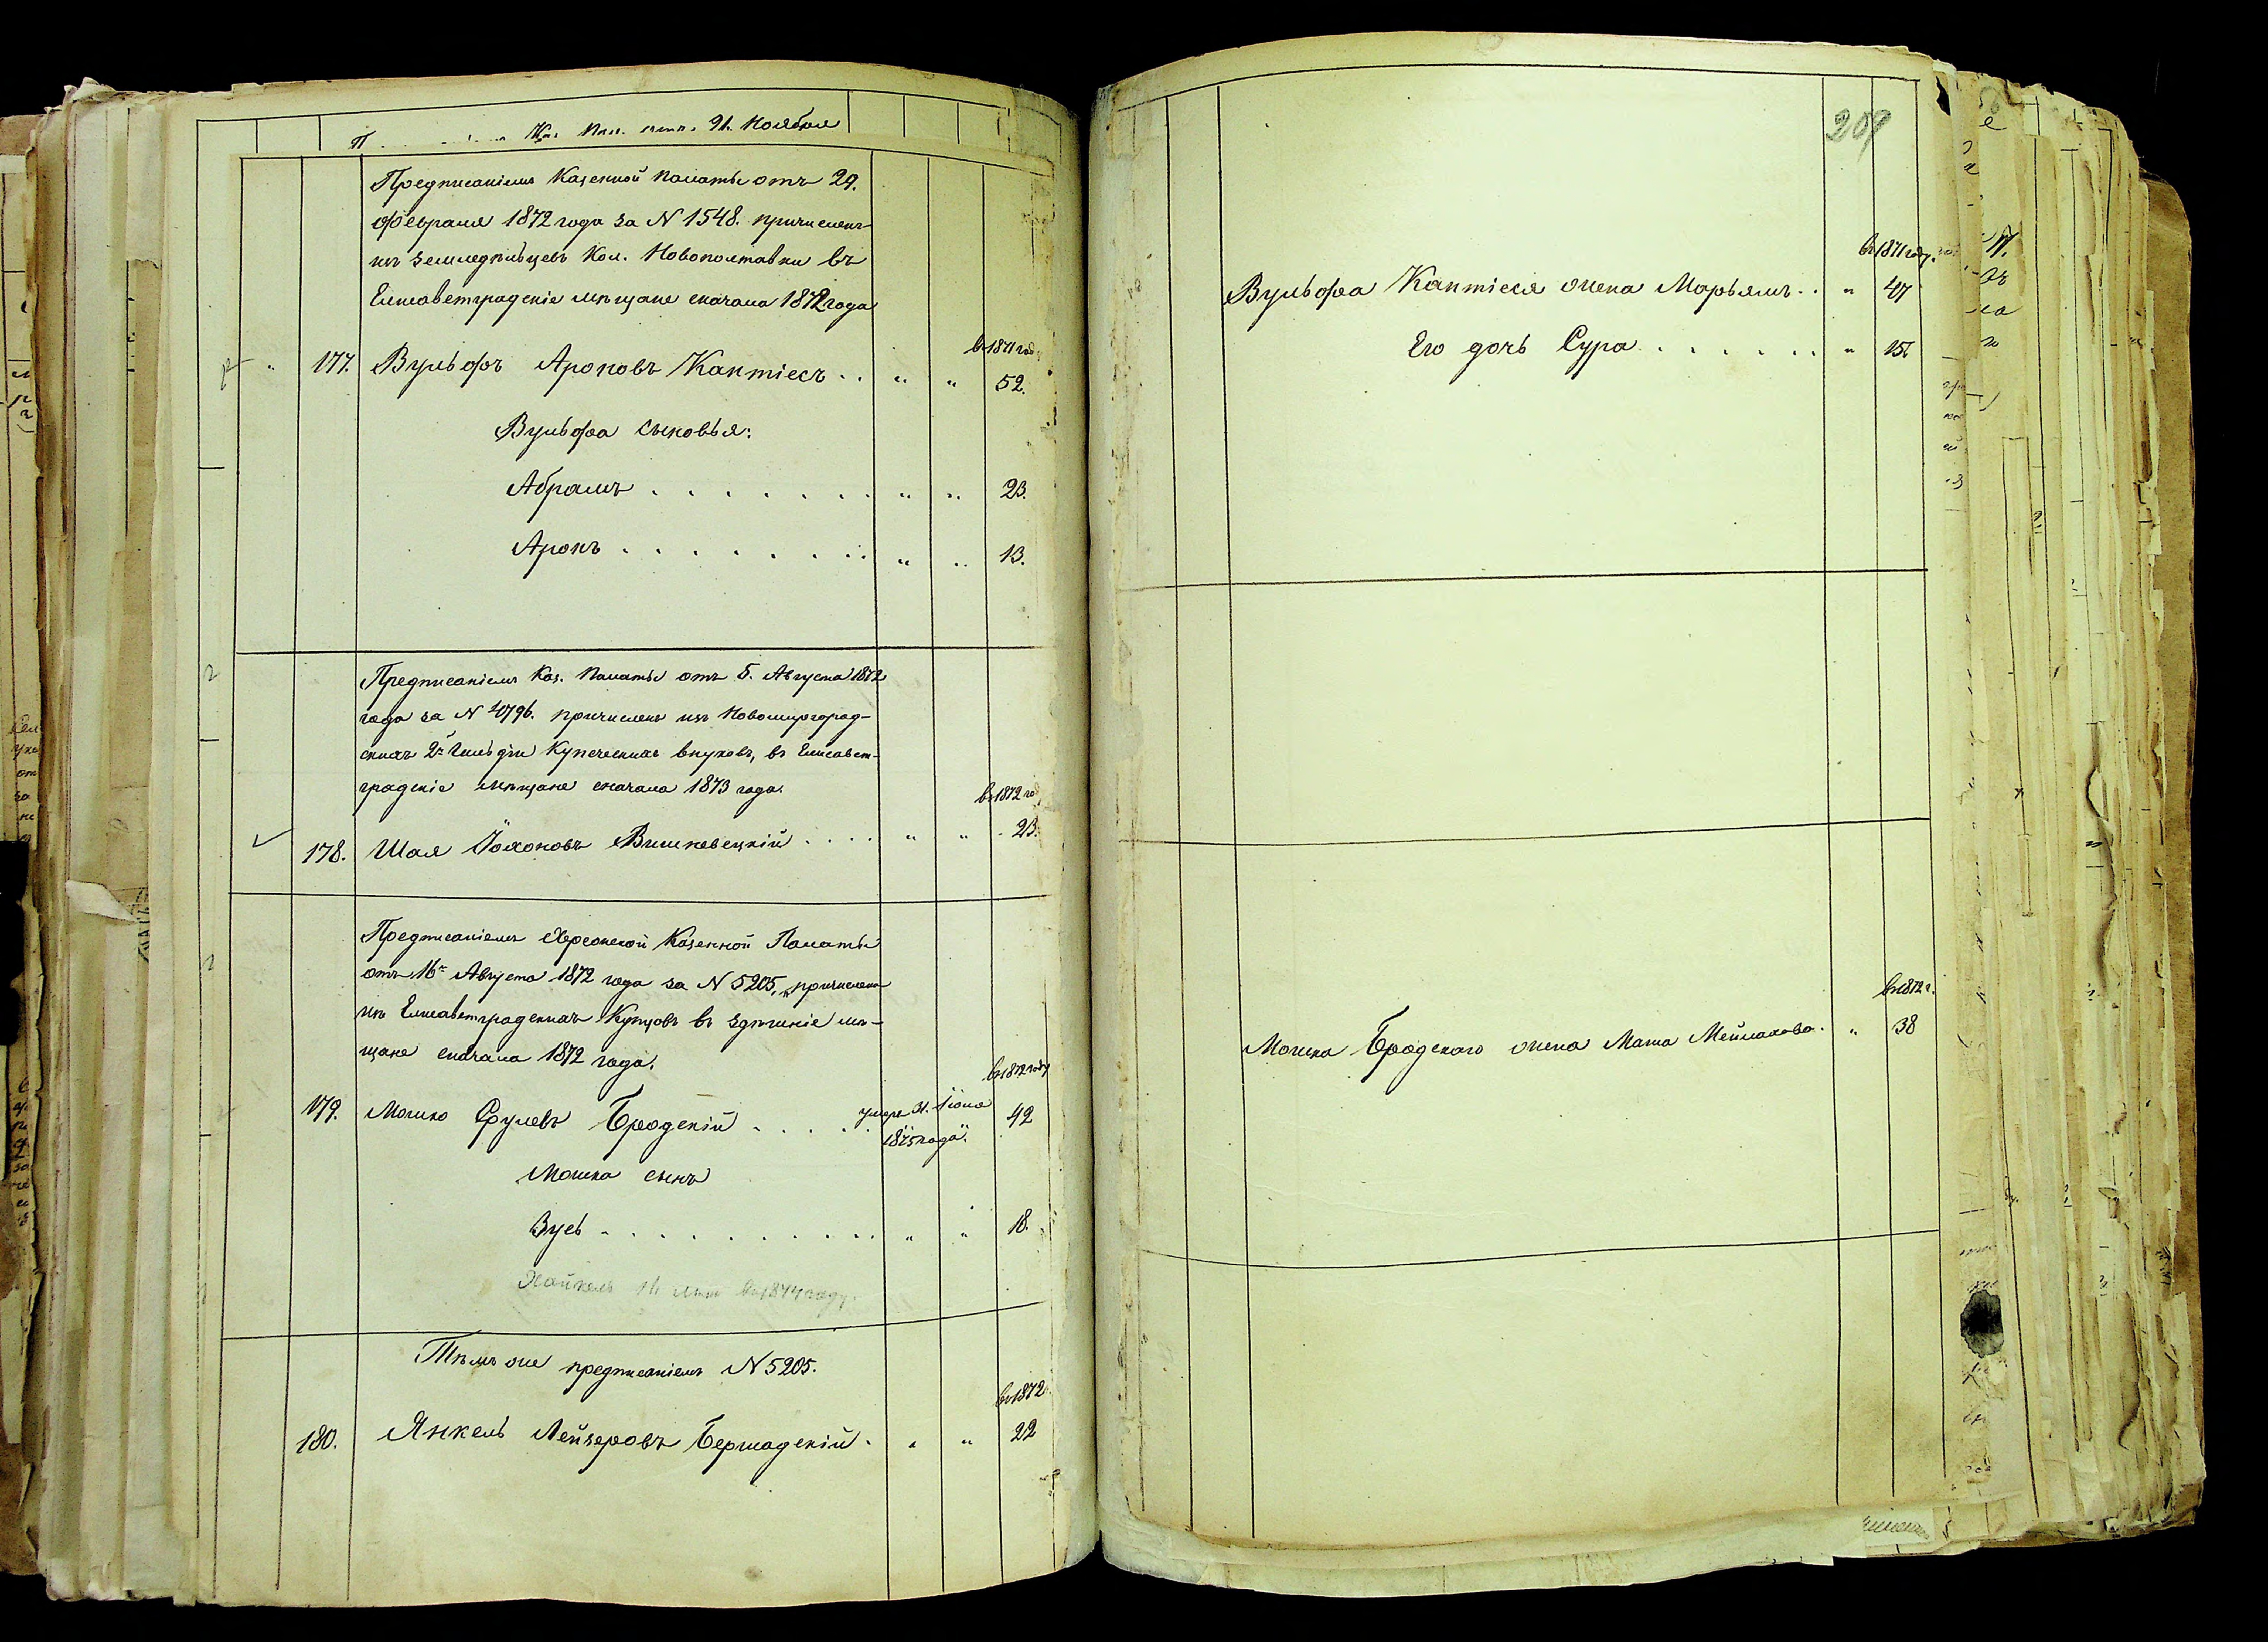 Каз. Пал. отъ 21. Ноября
Предписаніемъ Казенной Палаты отъ 29.
Февраля 1872 года за N 1548. причисленъ
изъ земледѣльцевъ Кол. Новополтавки въ
Елисаветградскіе мѣщане сначала 1872 года
въ 1871 год
177. Вульфъ Ароновъ Кантіесъ . . " " 52.
Вульфа сыновья:
Абрамъ . . . . . . . " " 23.
Аронъ . . . . . . . . " " 13.
Предписаніемъ Каз. Палаты отъ 5. Августа 1872
года за N 4796. причисленъ изъ Новомиргород-
скихъ 2й Гильдіи Купеческихъ внуковъ, въ Елисавет-
градскіе мѣщане сначала 1873 года.
въ 1872 го
178. Шая Іохоновъ Вишневецкій . . . . " " 23.
Предписаніемъ Херсонской Казенной Палаты
отъ 16го Августа 1872 года за N 5205, причислены
изъ Елисаветградскихъ Купцовъ въ здѣшніе мѣ-
щане сначала 1872 года.
въ 1872 году
179. Мошко Срулевъ Бродскій . . . . . умеръ 21. Іюня 1875 года. 42
Мошка сынъ
Зусь . . . . . . . . . . " " 18.
Хайкель 14 лѣтъ въ 1874 году.
Тѣмъ же предписаніемъ N 5205.
въ 1872
180. Янкель Лейзеровъ Бершадскій . " " 22
209
въ 1871 году.
Вульфа Кантіеса жена Марьямъ . . " 47
Его дочь Сура . . . . . . " 15
въ 1872 г.
Мошка Бродскаго жена Маша Мейлахова . " 38